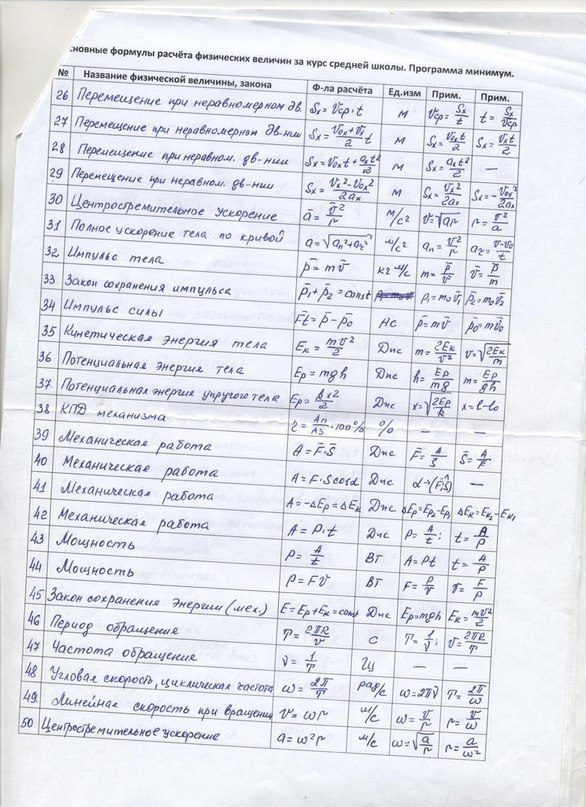 сновные формулы расчёта физических величин за курс средней школы. Программа минимум.
№ Название физической величины, закона Ф-ла расчёта Ед.изм Прим. Прим.
26 Перемещение при неравномерном дв. Sx = Vср·t м Vср = Sx/t t = Sx/Vср
27 Перемещение при неравномерном дв-нии Sx = (V0x+Vx)/2 t м Sx = V0xt/2 Sx = Vxt/2
28 Перемещение при неравном. дв-нии Sx = V0xt + axt²/2 м Sx = axt²/2 —
29 Перемещение при неравном. дв-нии Sx = (Vx²-V0x²)/2ax м Sx = Vx²/2ax Sx = -V0x²/2ax
30 Центростремительное ускорение a̅ = v̅²/r м/с² v = √ar r = v²/a
31 Полное ускорение тела по кривой a = √(an²+aτ²) м/с² an = v²/r aτ = (v-v0)/t
32 Импульс тела p̅ = mv̅ кг м/с m = p̅/v̅ v̅ = p̅/m
33 Закон сохранения импульса p̅1 + p̅2 = const p1 = m0v̅1 p̅2 = m0v̅2
34 Импульс силы F̅t = p̅ - p̅0 Нс p̅ = mv̅ p̅0 = mv̅0
35 Кинетическая энергия тела Eк = mv²/2 Дж m = 2Eк/v² v = √(2Eк/m)
36 Потенциальная энергия тела Ep = mgh Дж h = Ep/mg m = Ep/gh
37 Потенциальная энергия упругого тела Ep = kx²/2 Дж x = √(2Ep/k) x = l-l0
38 КПД механизма η = Aп/Aз · 100% % — —
39 Механическая работа A = F̅·S̅ Дж F̅ = A/S̅ S̅ = A/F̅
40 Механическая работа A = F·S cosα Дж α→(F̅;S̅) —
41 Механическая работа A = -ΔEp = ΔEк Дж ΔEp = Ep2-Ep1 ΔEк = Eк2-Eк1
42 Механическая работа A = P·t Дж P = A/t; t = A/P
43 Мощность P = A/t Вт A = Pt t = A/P
44 Мощность P = Fv Вт F = P/v v = F/P
45 Закон сохранения энергии (мех.) E = Ep + Eк = const Дж Ep = mgh Eк = mv²/2
46 Период обращения T = 2πR/v с T = 1/ν; v = 2πR/T
47 Частота обращения ν = 1/T Гц — —
48 Угловая скорость, циклическая частота ω = 2π/T рад/с ω = 2πν T = 2π/ω
49. Линейная скорость при вращении v = ωr м/с ω = v/r r = v/ω
50 Центростремительное ускорение a = ω²r м/с ω = √(a/r) r = a/ω²